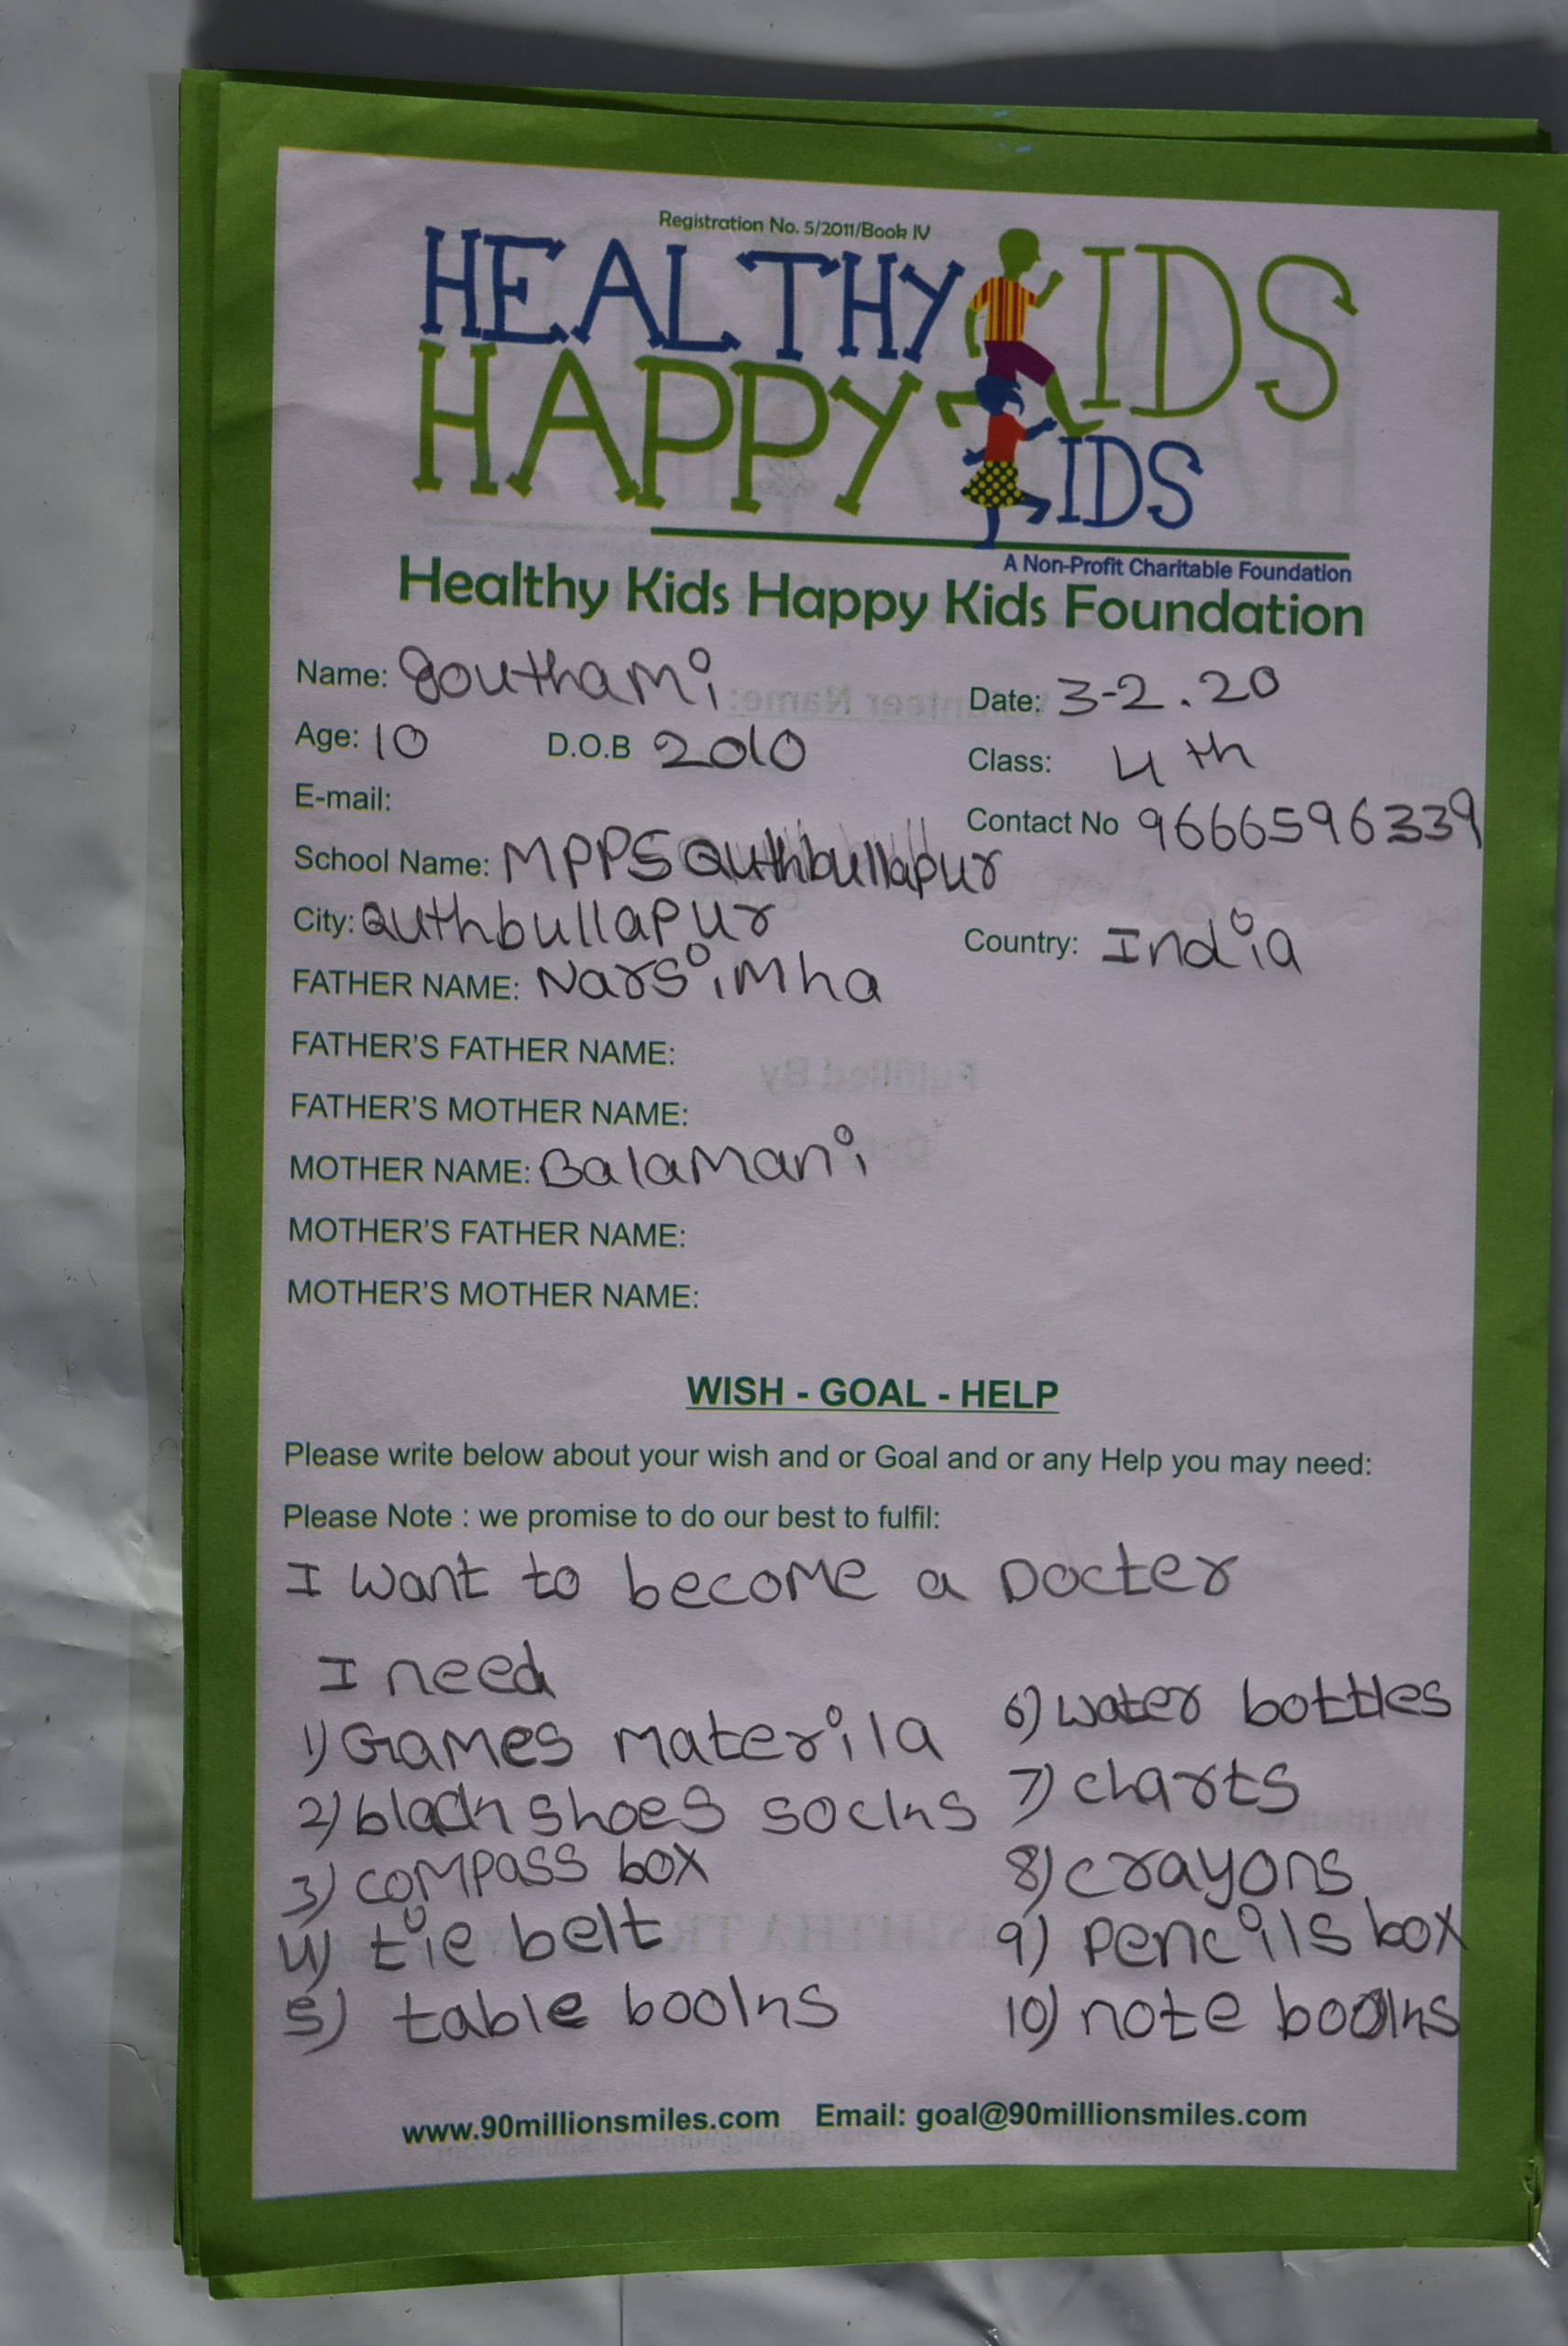 Registration No. 5/2011/Book IV
HEALTHY KIDS
HAPPY KIDS
A Non-Profit Charitable Foundation
Healthy Kids Happy Kids Foundation
Name: Gouthami
Date: 3-2.20
Age: 10 D.O.B 2010
Class: 4th
E-mail:
Contact No 9666596339
School Name: MPPS Quthbullapur
City: Quthbullapur
Country: India
FATHER NAME: Narsimha
FATHER'S FATHER NAME:
FATHER'S MOTHER NAME:
MOTHER NAME: Balamani
MOTHER'S FATHER NAME:
MOTHER'S MOTHER NAME:
WISH - GOAL - HELP
Please write below about your wish and or Goal and or any Help you may need:
Please Note : we promise to do our best to fulfil:
I want to become a Docter
I need
1) Games materila
2) black shoes socks
3) compass box
4) tie belt
5) table books
6) water bottles
7) charts
8) crayons
9) pencils box
10) note books
www.90millionsmiles.com Email: goal@90millionsmiles.com